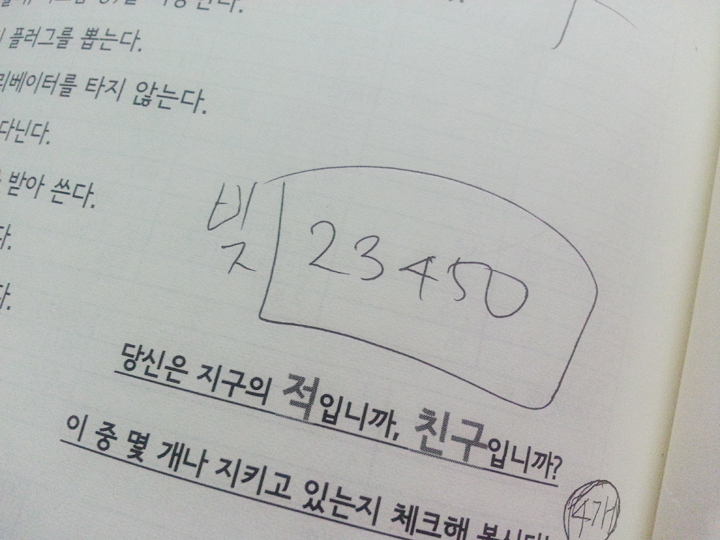 플러그를 뽑는다.
타지 않는다.
다닌다.
받아 쓴다.
다.
다.
빚
23450
당신은 지구의 적입니까, 친구입니까?
이 중 몇 개나 지키고 있는지 체크해
4개